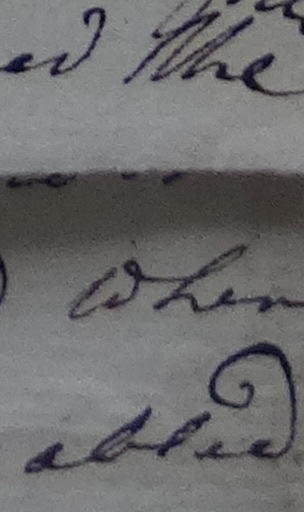 ed the
when
abled